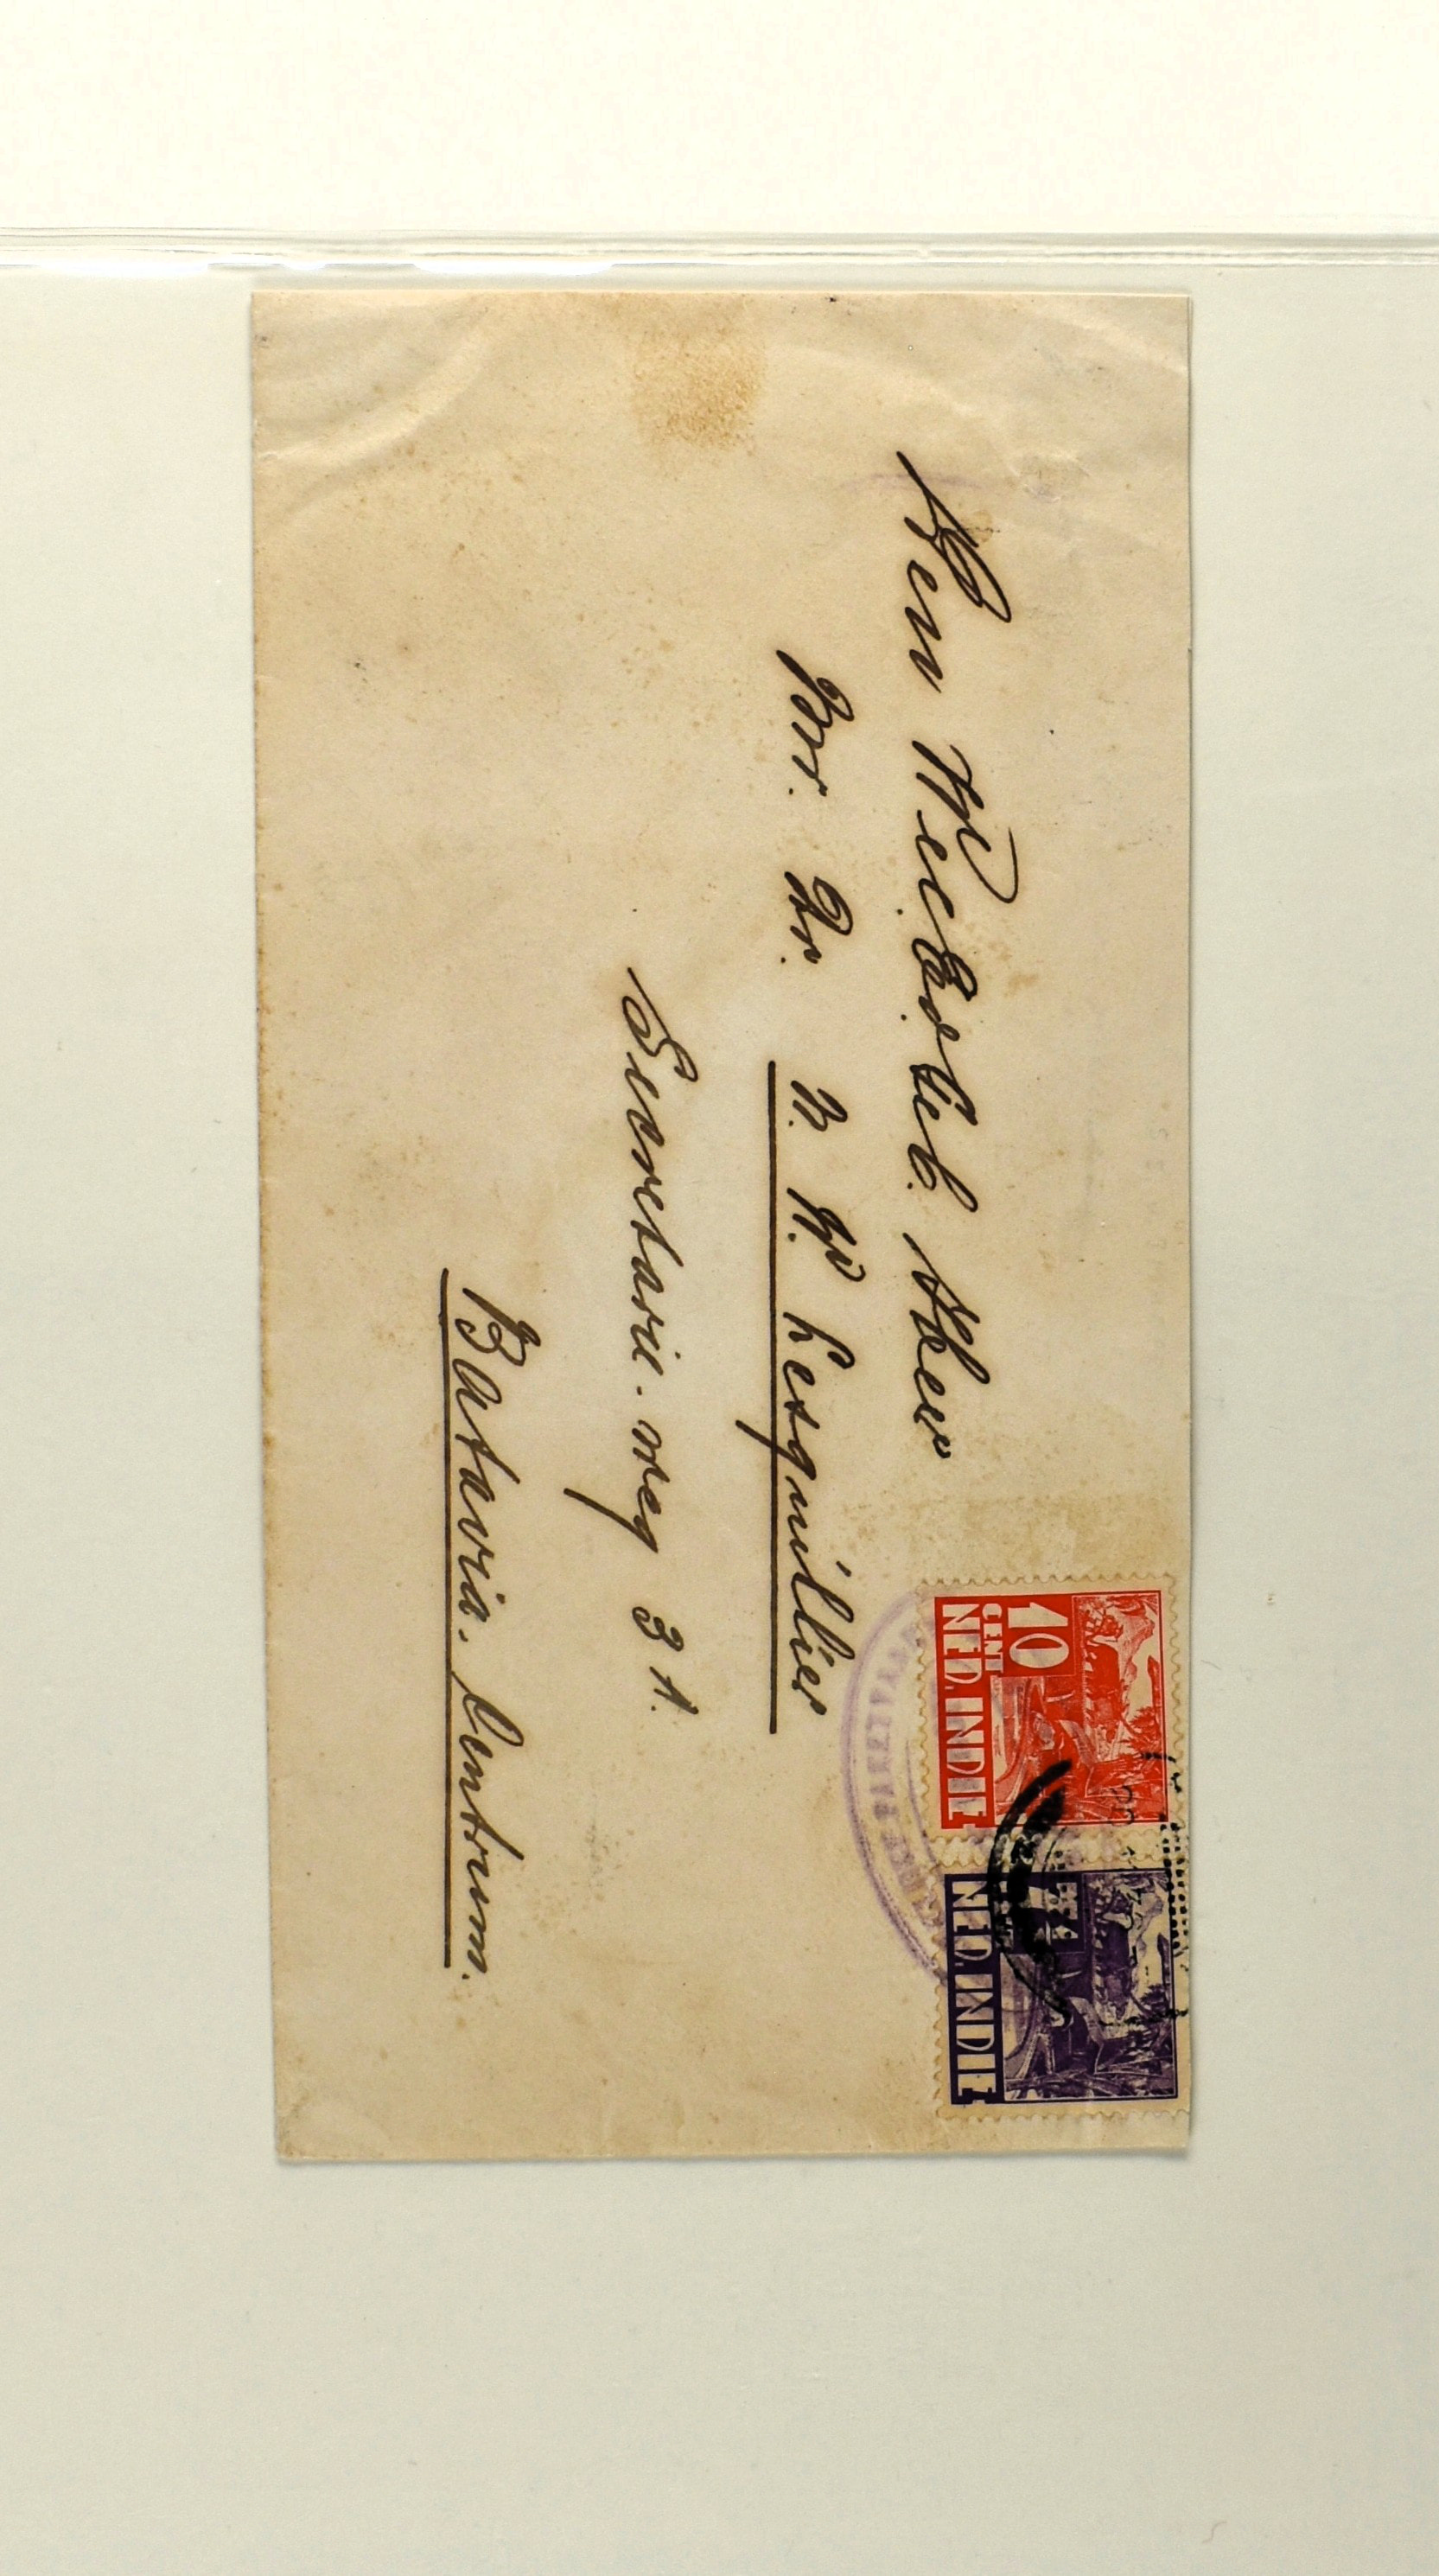 Den WelEdelGeb. Heer
Mr. Dr. N. W. Lesquillier
Secretarie-weg 31.
Batavia. Centrum.
10
CENT
NED. INDIE
NED. INDIE